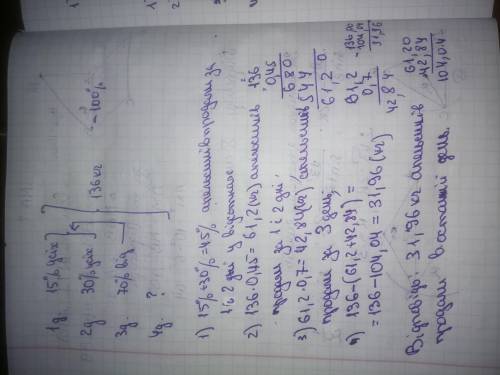 1д. 15% усіх
2д. 30% усіх
3д. 70% від
4д. ?
136 кг
= 100%
1) 15% + 30% = 45% апельсинів продали за
1 і 2 дні у відсотках
2) 136 · 0,45 = 61,2 (кг) апельсинів
продали за 1 і 2 дні.
136
0,45
680
544
61,20
3) 61,2 · 0,7 = 42,84 (кг) апельсинів
продали за 3 день
61,2
0,7
42,84
4) 136 - (61,2 + 42,84) =
= 136 - 104,04 = 31,96 (кг)
136,00
104,04
31,96
61,20
42,84
104,04
Відповідь: 31,96 кг апельсинів
продали в останній день.